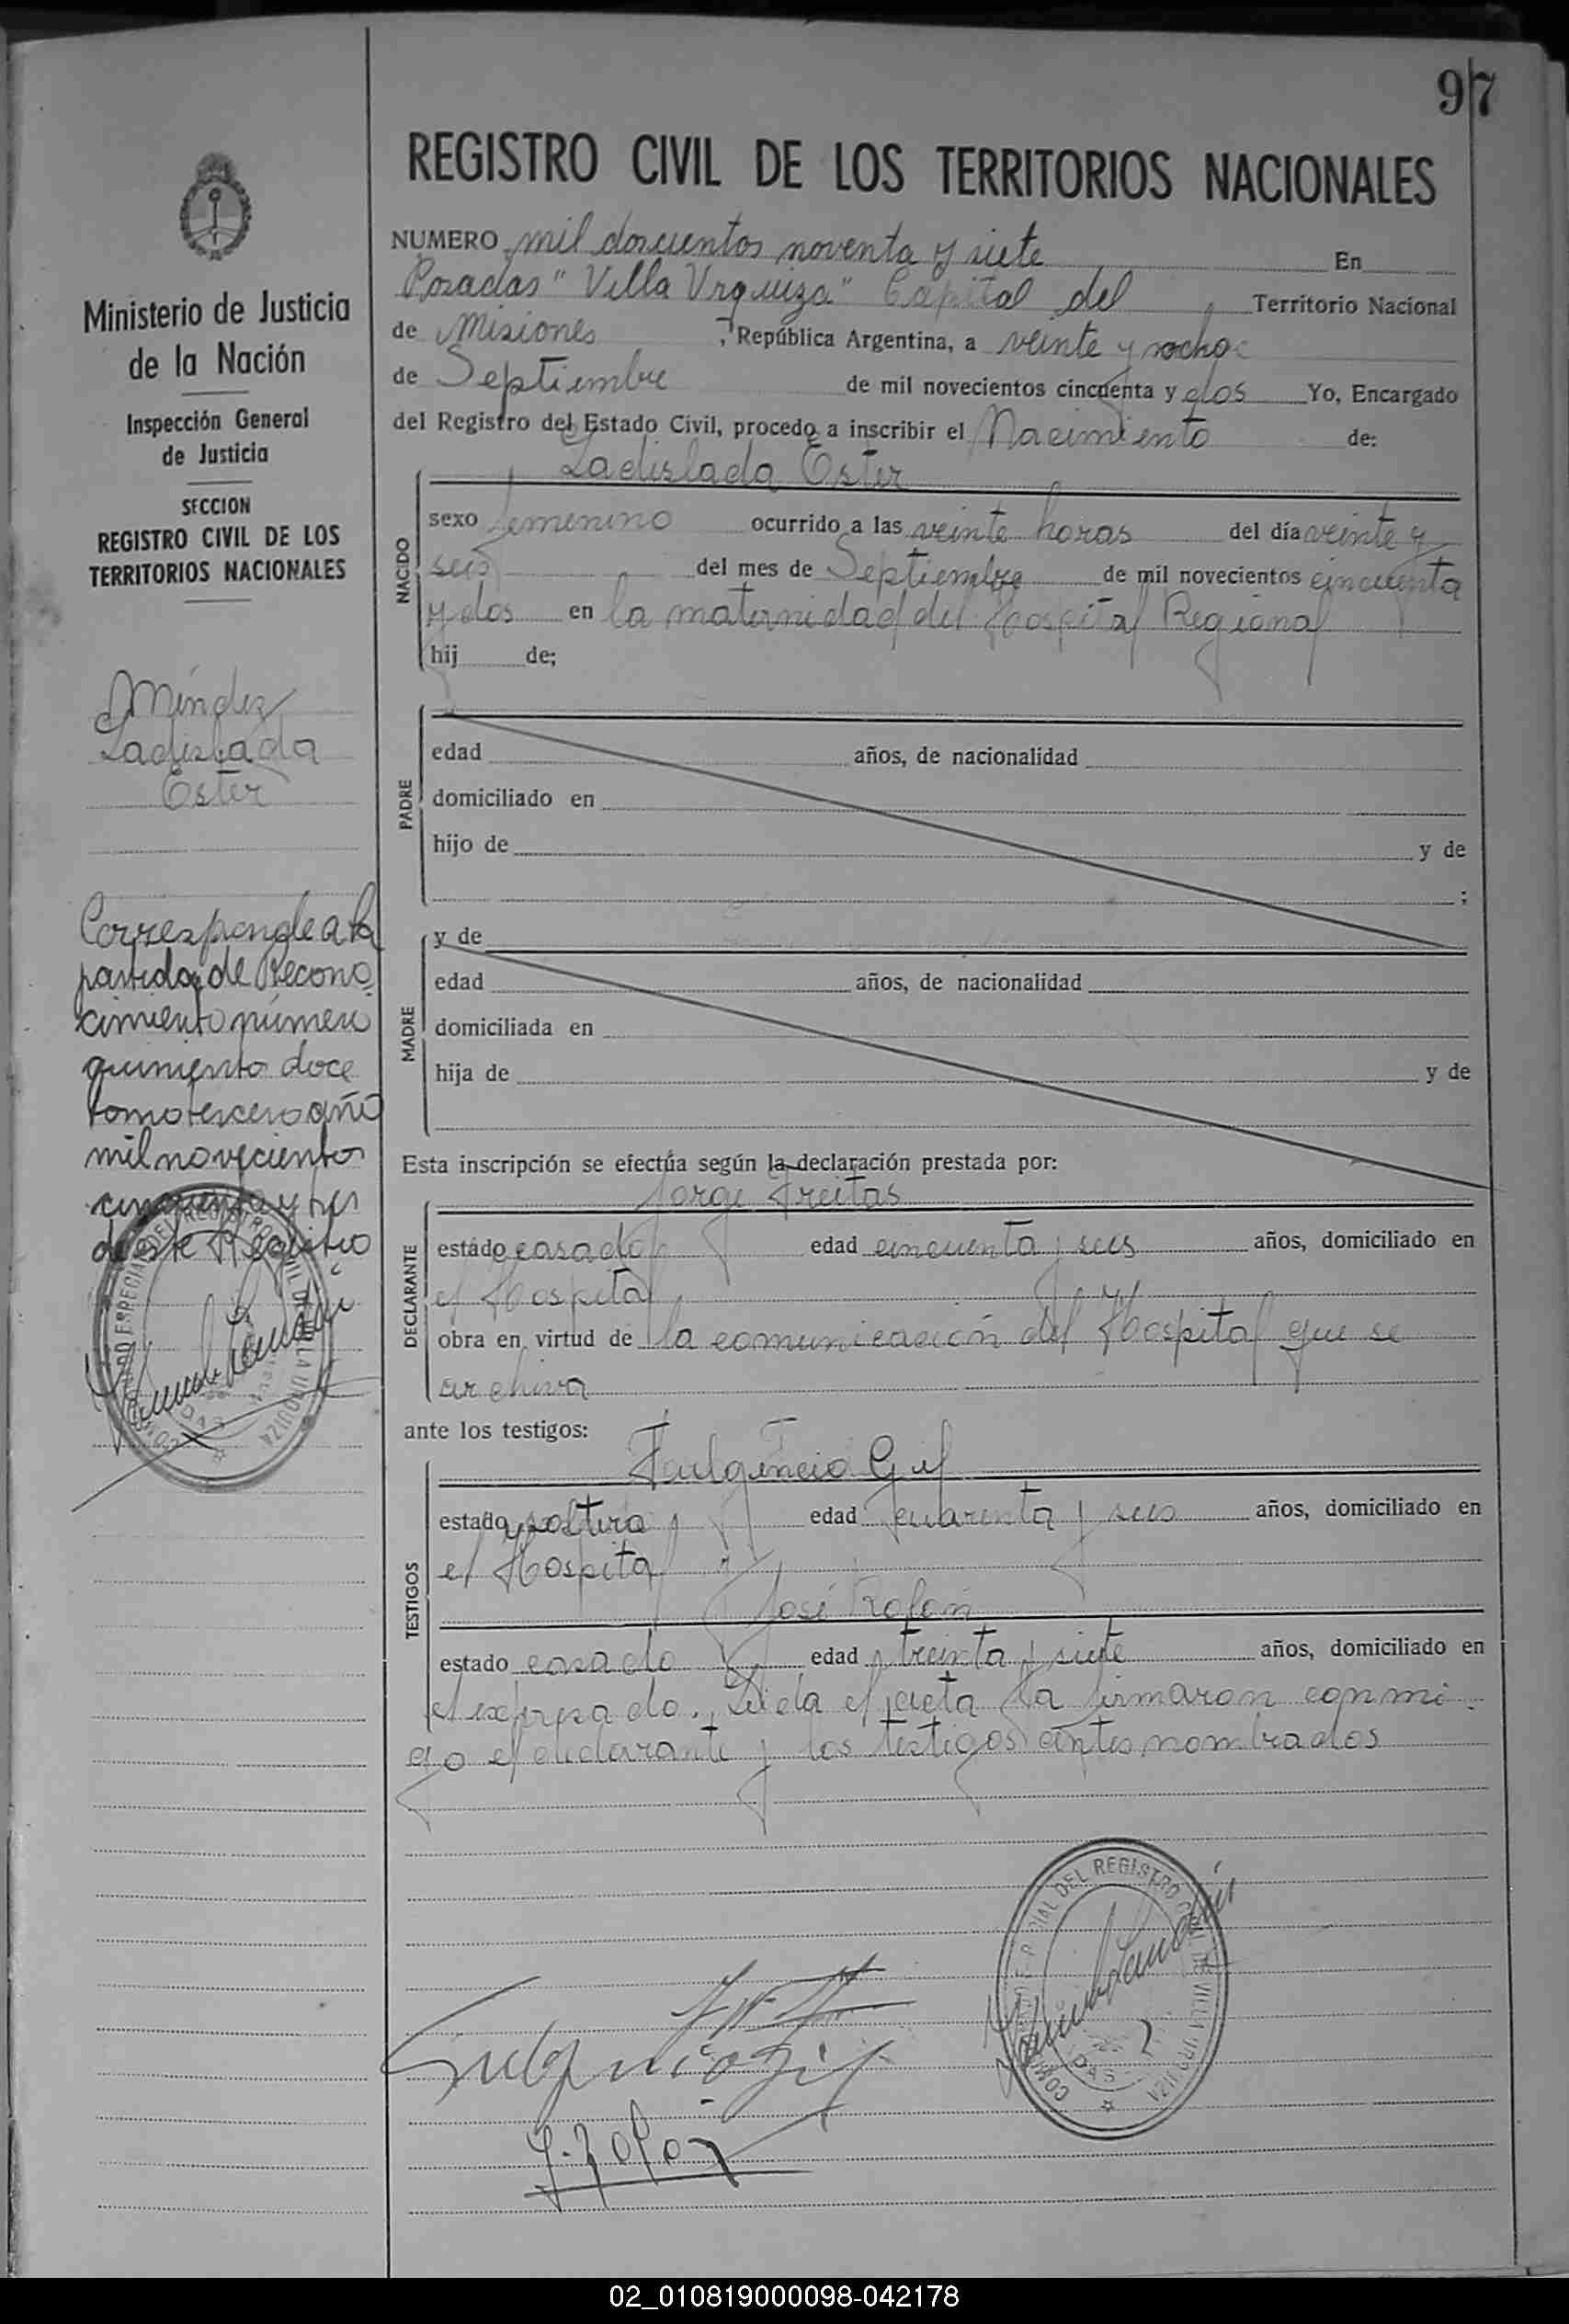 97
REGISTRO CIVIL DE LOS TERRITORIOS NACIONALES
Ministerio de Justicia
de la Nación
Inspección General
de Justicia
SECCION
REGISTRO CIVIL DE LOS
TERRITORIOS NACIONALES
Méndez
Ladislada
Ester
Corresponde a la
partida de Recono
cimiento número
quiniento doce
tomo tercero año
mil noveciento
cincuenta y tres
de este Registro
NUMERO mil doscientos noventa y siete En
Posadas "Villa Urquiza" Capital del Territorio Nacional
de Misiones, República Argentina, a veinte y ocho
de Septiembre de mil novecientos cincuenta y dos Yo, Encargado
del Registro del Estado Civil, procedo a inscribir el Nacimiento de:
Ladislada Ester
NACIDO
sexo femenino ocurrido a las veinte horas del día veinte y
seis del mes de Septiembre de mil novecientos cincuenta
y dos en la maternidad del Hospital Regional
hij de;
PADRE
edad años, de nacionalidad
domiciliado en
hijo de y de
;
MADRE
y de
edad años, de nacionalidad
domiciliada en
hija de y de
Esta inscripción se efectúa según la declaración prestada por:
Jorge Freitas
DECLARANTE
estado casado edad cincuenta y seis años, domiciliado en
el Hospital
obra en virtud de la comunicación del Hospital que se
archiva
ante los testigos:
Fulgencio Gil
TESTIGOS
estado soltero edad cuarenta y seis años, domiciliado en
el Hospital y
José Rolón
estado casado edad treinta y siete años, domiciliado en
el expresado. Leida el acta la firmaron conmi
go el declarante y los testigos antes nombrados
Fulgencio Gil
J. Rolon
DEL REGISTRO CIVIL DE VILLA URQUIZA
02_010819000098-042178